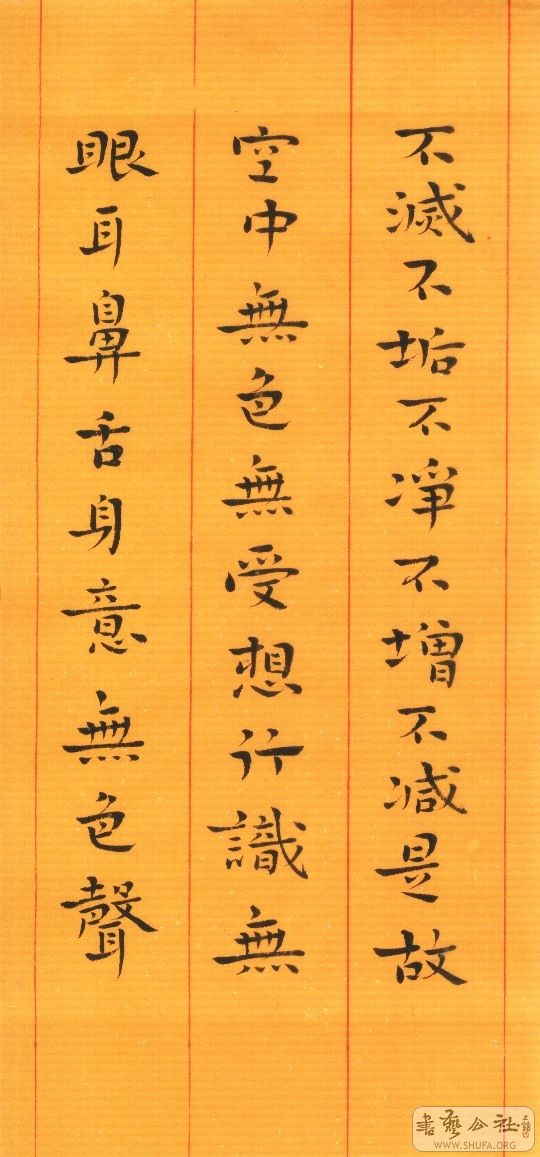 不滅不垢不凈不增不減是故
空中無色無受想行識無
眼耳鼻舌身意無色聲
書藝公社
WWW.SHUFA.ORG